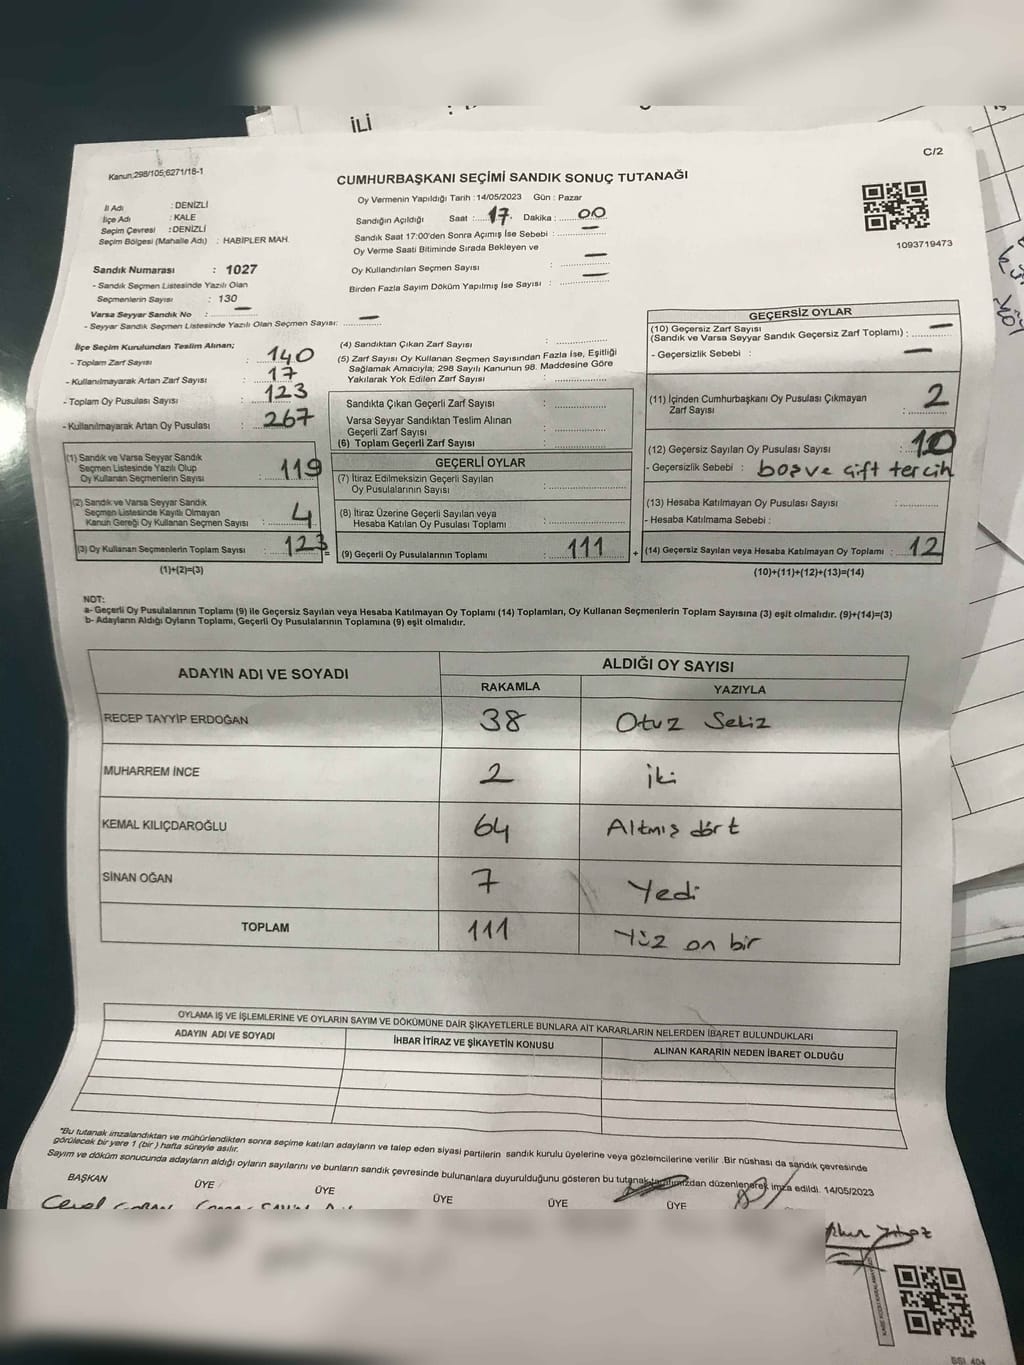 İLİ
C/2
Kanun:298/105;6271/18-1
CUMHURBAŞKANI SEÇİMİ SANDIK SONUÇ TUTANAĞI
Oy Vermenin Yapıldığı Tarih : 14/05/2023 Gün : Pazar
Sandığın Açıldığı Saat : 17. Dakika : 00
Sandık Saat 17:00'den Sonra Açımış İse Sebebi : —
Oy Verme Saati Bitiminde Sırada Bekleyen ve
Oy Kullandırılan Seçmen Sayısı : —
Birden Fazla Sayım Döküm Yapılmış İse Sayısı : —
1093719473
İl Adı : DENİZLİ
İlçe Adı : KALE
Seçim Çevresi : DENİZLİ
Seçim Bölgesi (Mahalle Adı) : HABİPLER MAH.
Sandık Numarası : 1027
- Sandık Seçmen Listesinde Yazılı Olan
Seçmenlerin Sayısı : 130
Varsa Seyyar Sandık No : —
- Seyyar Sandık Seçmen Listesinde Yazılı Olan Seçmen Sayısı: —
İlçe Seçim Kurulundan Teslim Alınan;
- Toplam Zarf Sayısı : 140
- Kullanılmayarak Artan Zarf Sayısı : 17
- Toplam Oy Pusulası Sayısı : 123
- Kullanılmayarak Artan Oy Pusulası : 267
(1) Sandık ve Varsa Seyyar Sandık
Seçmen Listesinde Yazılı Olup
Oy Kullanan Seçmenlerin Sayısı : 119
(2) Sandık ve Varsa Seyyar Sandık
Seçmen Listesinde Kayıtlı Olmayan
Kanun Gereği Oy Kullanan Seçmen Sayısı : 4
(3) Oy Kullanan Seçmenlerin Toplam Sayısı : 123 =
(1)+(2)=(3)
(4) Sandıktan Çıkan Zarf Sayısı :
(5) Zarf Sayısı Oy Kullanan Seçmen Sayısından Fazla İse, Eşitliği
Sağlamak Amacıyla; 298 Sayılı Kanunun 98. Maddesine Göre
Yakılarak Yok Edilen Zarf Sayısı :
Sandıkta Çıkan Geçerli Zarf Sayısı :
Varsa Seyyar Sandıktan Teslim Alınan
Geçerli Zarf Sayısı :
(6) Toplam Geçerli Zarf Sayısı :
GEÇERLİ OYLAR
(7) İtiraz Edilmeksizin Geçerli Sayılan
Oy Pusulalarının Sayısı :
(8) İtiraz Üzerine Geçerli Sayılan veya
Hesaba Katılan Oy Pusulası Toplamı :
(9) Geçerli Oy Pusulalarının Toplamı : 111 +
GEÇERSİZ OYLAR
(10) Geçersiz Zarf Sayısı
(Sandık ve Varsa Seyyar Sandık Geçersiz Zarf Toplamı) : —
- Geçersizlik Sebebi : —
(11) İçinden Cumhurbaşkanı Oy Pusulası Çıkmayan
Zarf Sayısı : 2
(12) Geçersiz Sayılan Oy Pusulası Sayısı : 10
- Geçersizlik Sebebi : boş ve çift tercih
(13) Hesaba Katılmayan Oy Pusulası Sayısı :
- Hesaba Katılmama Sebebi :
(14) Geçersiz Sayılan veya Hesaba Katılmayan Oy Toplamı : 12
(10)+(11)+(12)+(13)=(14)
NOT:
a- Geçerli Oy Pusulalarının Toplamı (9) ile Geçersiz Sayılan veya Hesaba Katılmayan Oy Toplamı (14) Toplamları, Oy Kullanan Seçmenlerin Toplam Sayısına (3) eşit olmalıdır. (9)+(14)=(3)
b- Adayların Aldığı Oyların Toplamı, Geçerli Oy Pusulalarının Toplamına (9) eşit olmalıdır.
ADAYIN ADI VE SOYADI
ALDIĞI OY SAYISI
RAKAMLA YAZIYLA
RECEP TAYYİP ERDOĞAN 38 Otuz Sekiz
MUHARREM İNCE 2 iki
KEMAL KILIÇDAROĞLU 64 Altmış dört
SİNAN OĞAN 7 Yedi
TOPLAM 111 Yüz on bir
OYLAMA İŞ VE İŞLEMLERİNE VE OYLARIN SAYIM VE DÖKÜMÜNE DAİR ŞİKAYETLERLE BUNLARA AİT KARARLARIN NELERDEN İBARET BULUNDUKLARI
ADAYIN ADI VE SOYADI İHBAR İTİRAZ VE ŞİKAYETİN KONUSU ALINAN KARARIN NEDEN İBARET OLDUĞU
*Bu tutanak imzalandıktan ve mühürlendikten sonra seçime katılan adayların ve talep eden siyasi partilerin sandık kurulu üyelerine veya gözlemcilerine verilir .Bir nüshası da sandık çevresinde
görülecek bir yere 1 (bir ) hafta süreyle asılır.
Sayım ve döküm sonucunda adayların aldığı oyların sayılarını ve bunların sandık çevresinde bulunanlara duyurulduğunu gösteren bu tutanak tarafımızdan düzenlenerek imza edildi. 14/05/2023
BAŞKAN ÜYE ÜYE ÜYE ÜYE ÜYE